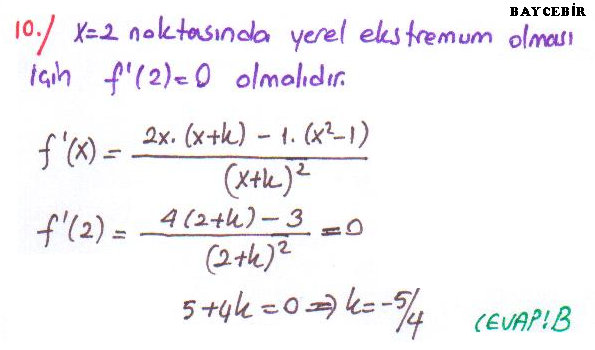 BAYCEBİR
10./ x=2 noktasında yerel ekstremum olması
için f'(2)=0 olmalıdır.
f'(x) = 2x.(x+k) - 1.(x²-1) / (x+k)²
f'(2) = 4(2+k) - 3 / (2+k)² = 0
5+4k = 0 ⇒ k = -5/4
CEVAP!B